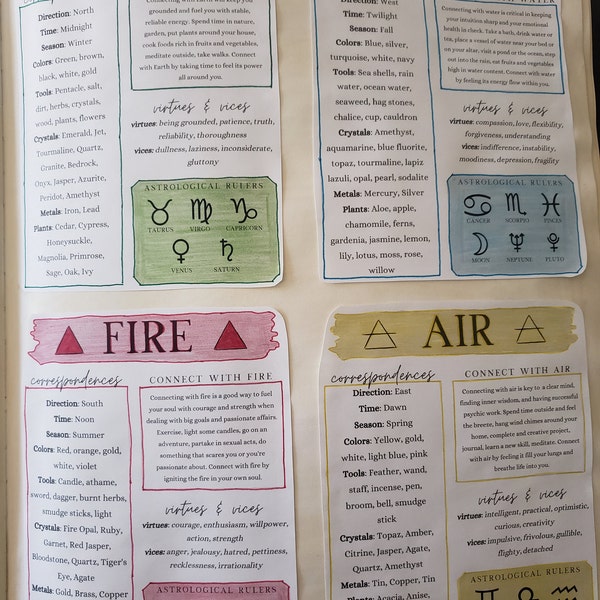 Direction: North
Time: Midnight
Season: Winter
Colors: Green, brown,
black, white, gold
Tools: Pentacle, salt,
dirt, herbs, crystals,
wood, plants, flowers
Crystals: Emerald, Jet,
Tourmaline, Quartz,
Granite, Bedrock,
Onyx, Jasper, Azurite,
Peridot, Amethyst
Metals: Iron, Lead
Plants: Cedar, Cypress,
Honeysuckle,
Magnolia, Primrose,
Sage, Oak, Ivy
grounded and fuel you with stable,
reliable energy. Spend time in nature,
garden, put plants around your house,
cook foods rich in fruits and vegetables,
meditate outside, take walks. Connect
with Earth by taking time to feel its power
all around you.
virtues & vices
virtues: being grounded, patience, truth,
reliability, thoroughness
vices: dullness, laziness, inconsiderate,
gluttony
ASTROLOGICAL RULERS
TAURUS VIRGO CAPRICORN
VENUS SATURN
Direction: West
Time: Twilight
Season: Fall
Colors: Blue, silver,
turquoise, white, navy
Tools: Sea shells, rain
water, ocean water,
seaweed, hag stones,
chalice, cup, cauldron
Crystals: Amethyst,
aquamarine, blue fluorite,
topaz, tourmaline, lapiz
lazuli, opal, pearl, sodalite
Metals: Mercury, Silver
Plants: Aloe, apple,
chamomile, ferns,
gardenia, jasmine, lemon,
lily, lotus, moss, rose,
willow
WATER
Connecting with water is critical in keeping
your intuition sharp and your emotional
health in check. Take a bath, drink water or
tea, place a vessel of water near your bed or
on your altar, visit a pond or the ocean, step
out into the rain, eat fruits and vegetables
high in water content. Connect with water
by feeling its energy flow within you.
virtues & vices
virtues: compassion, love, flexibility,
forgiveness, understanding
vices: indifference, instability,
moodiness, depression, fragility
ASTROLOGICAL RULERS
CANCER SCORPIO PISCES
MOON NEPTUNE PLUTO
FIRE
correspondences
Direction: South
Time: Noon
Season: Summer
Colors: Red, orange, gold,
white, violet
Tools: Candle, athame,
sword, dagger, burnt herbs,
smudge sticks, light
Crystals: Fire Opal, Ruby,
Garnet, Red Jasper,
Bloodstone, Quartz, Tiger's
Eye, Agate
Metals: Gold, Brass, Copper
CONNECT WITH FIRE
Connecting with fire is a good way to fuel
your soul with courage and strength when
dealing with big goals and passionate affairs.
Exercise, light some candles, go on an
adventure, partake in sexual acts, do
something that scares you or you're
passionate about. Connect with fire by
igniting the fire in your own soul.
virtues & vices
virtues: courage, enthusiasm, willpower,
action, strength
vices: anger, jealousy, hatred, pettiness,
recklessness, irrationality
ASTROLOGICAL RULERS
AIR
correspondences
Direction: East
Time: Dawn
Season: Spring
Colors: Yellow, gold,
white, light blue, pink
Tools: Feather, wand,
staff, incense, pen,
broom, bell, smudge
stick
Crystals: Topaz, Amber,
Citrine, Jasper, Agate,
Quartz, Amethyst
Metals: Tin, Copper, Tin
Plants: Acacia, Anise,
CONNECT WITH AIR
Connecting with air is key to a clear mind,
finding inner wisdom, and having successful
psychic work. Spend time outside and feel
the breeze, hang wind chimes around your
home, complete and creative project,
journal, learn a new skill, meditate. Connect
with air by feeling it fill your lungs and
breathe life into you.
virtues & vices
virtues: intelligent, practical, optimistic,
curious, creativity
vices: impulsive, frivolous, gullible,
flighty, detached
ASTROLOGICAL RULERS